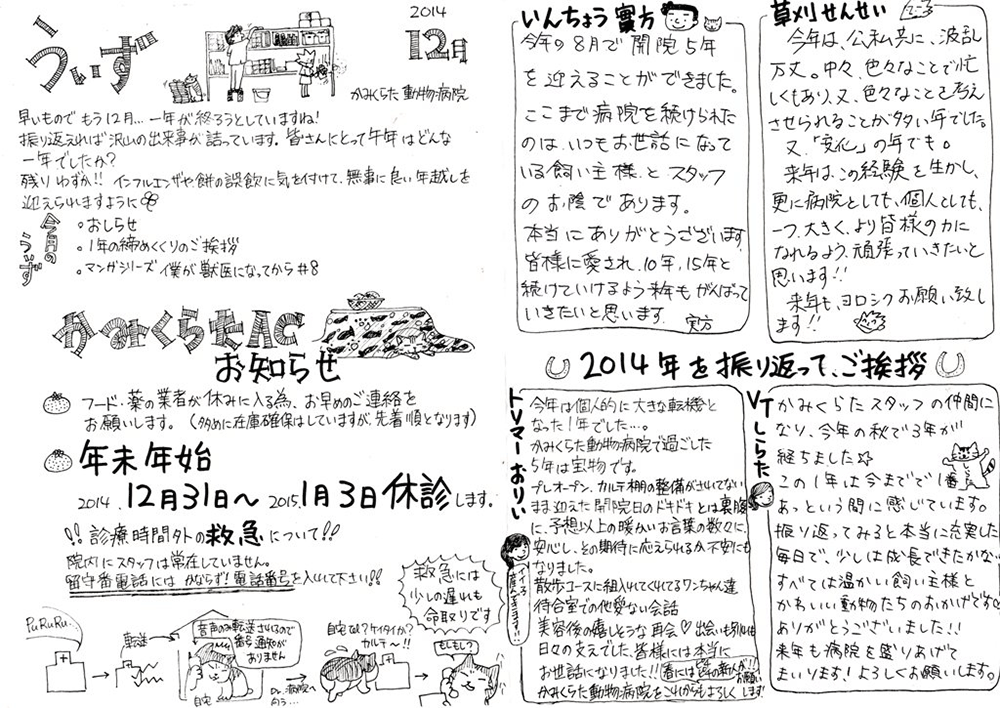 2014
うぃず
12月
かみくらた動物病院
早いものでもう12月…一年が終ろうとしていますね!
振り返えれば沢山の出来事が詰っています。皆さんにとって午年はどんな
一年でしたか?
残りわずか!! インフルエンザや餅の誤飲に気を付けて、無事に良い年越しを
迎えられますように
今月のうぃず
・おしらせ
・1年の締めくくりのご挨拶
・マンガシリーズ 僕が獣医になってから #8
かみくらたAC
お知らせ
フード・薬の業者が休みに入る為、お早めのご連絡を
お願いします。(多めに在庫確保はしていますが、先着順となります)
年末年始
2014.12月31日〜2015.1月3日休診します。
!!診療時間外の救急について!!
院内にスタッフは常在していません。
留守番電話には かならず!電話番号を入れて下さい!!
救急には
少しの遅れも
命取りです
PuRuRu..
転送
音声のみ転送されるので
番号通知が
ありません
自宅
Dr.病院へ
向う…
自宅なし?ケイタイか?
カルテ〜!!
もしもし?
いんちょう 實方
今年の8月で開院5年
を迎えることができました。
ここまで病院を続けられた
のは、いつもお世話になって
いる飼い主様とスタッフ
のお陰であります。
本当にありがとうございます。
皆様に愛され、10年、15年と
続けていけるよう来年もがんばって
いきたいと思います。
実方
草刈せんせい
今年は、公私共に、波乱
万丈。中々、色々なことで忙
しくもあり、又、色々なことを考え
させられることが多い年でした。
又、「変化」の年でも。
来年は、この経験を生かし、
更に病院としても、個人としても、
一つ、大きく、より皆様の力に
なれるよう、頑張っていきたいと
思います!!
来年も、ヨロシクお願い致し
ます!!
2014年を振り返って、ご挨拶
トリマー おりい
今年は個人的に大きな転機と
なった1年でした…。
かみくらた動物病院で過ごした
5年は宝物です。
プレオープン、カルテ棚の整備がされてない
まま迎えた開院日のドキドキとは裏腹
に、予想以上の暖かいお言葉の数々に、
安心し、その期待に応えられるか不安にも
なりました。
散歩コースに組入れてくれてるワンちゃん達
待合室での他愛ない会話
美容後の嬉しそうな再会♡出会いも別れも
日々の支えでした。皆様には本当に
お世話になりました!!
かみくらた動物病院をこれからもよろしくお願いします!
VTしらた
かみくらたスタッフの仲間に
なり、今年の秋で3年が
経ちました☆
この1年は今までで1番
あっという間に感じています。
振り返ってみると本当に充実した
毎日で、少しは成長できたかな…
すべては温かい飼い主様と
かわいい動物たちのおかげです。
ありがとうございました!!
来年も病院を盛りあげて
まいります!よろしくお願いします。